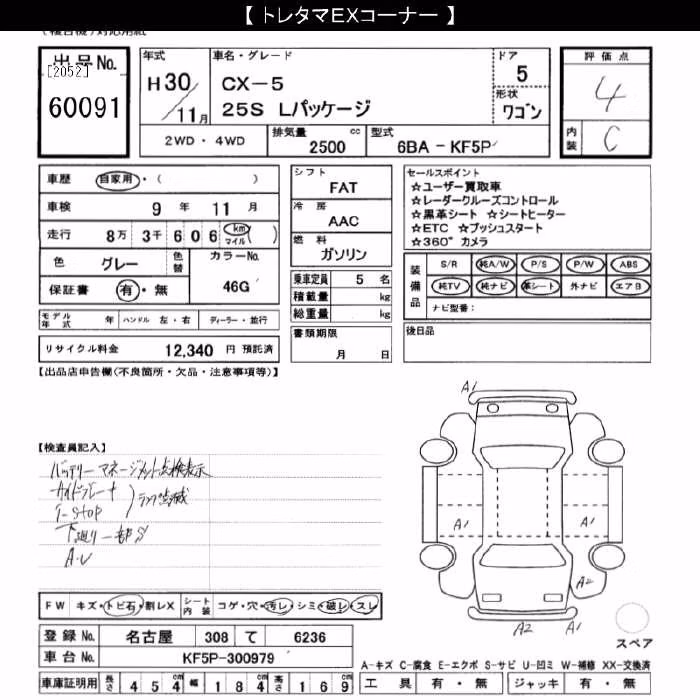 【 トレタマEXコーナー 】
(複合機)対応用紙
出品No.
[2052]
60091
年式
H30/11月
車名・グレード
CX-5
25S Lパッケージ
ドア
5
形状
ワゴン
評価点
4
内装
C
2WD・4WD
排気量
2500 cc
型式
6BA - KF5P
車歴 自家用・( )
車検 9 年 11 月
走行 8万 3千 6 0 6 (km マイル)
色 グレー
色替
カラーNo.
46G
保証書 有・無
シフト
FAT
冷房
AAC
燃料
ガソリン
乗車定員 5 名
積載量 kg
総重量 kg
書類期限
月 日
セールスポイント
☆ユーザー買取車
☆レーダークルーズコントロール
☆黒革シート ☆シートヒーター
☆ETC ☆プッシュスタート
☆360°カメラ
装備品
S/R 純A/W P/S P/W ABS
純TV 純ナビ 革シート 外ナビ エアB
ナビ型番:
後日品
モデル年式 年 ハンドル 左・右 ディーラー・並行
リサイクル料金 12,340 円 預託済
【出品店申告欄(不良箇所・欠品・注意事項等)】
【検査員記入】
バッテリーマネージメント点検表示
サイドブレーキ
i-stop
ランプ点滅
下廻り一部S
A・U
A1
A1
A1
A2
A2
A1
スペア
FW キズ・トビ石・割レX
シート内装 コゲ・穴・汚レ・シミ・破レ・スレ
登録No. 名古屋 308 て 6236
車台No. KF5P-300979
A-キズ C-腐食 E-エクボ S-サビ U-凹ミ W-補修 XX-交換済
車庫証明用 長さ 4 5 4 cm 幅 1 8 4 cm 高さ 1 6 9 cm
工具 有・無 ジャッキ 有・無